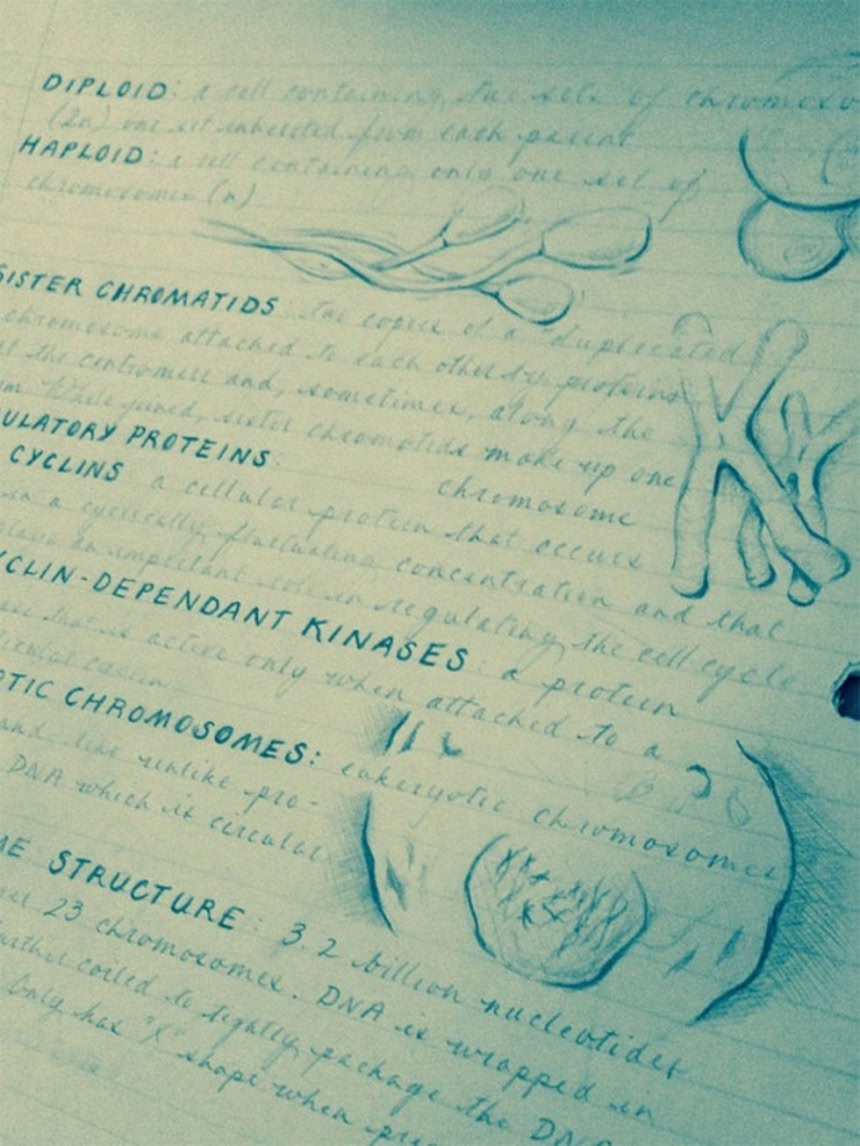 DIPLOID: a cell containing two sets of chromoso
(2n) one set inherited from each parent
HAPLOID: a cell containing only one set of
chromosomes (n)
SISTER CHROMATIDS: two copies of a duplicated
chromosome attached to each other by proteins
at the centromere and, sometimes, along the
While joined, sister chromatids make up one
chromosome
ULATORY PROTEINS:
CYCLINS a cellular protein that occurs
in a cyclically fluctuating concentration and that
plays an important role in regulating the cell cycle
YCLIN-DEPENDANT KINASES: a protein
that is active only when attached to a
cyclin
OTIC CHROMOSOMES: eukaryotic chromosomes
and like unlike pro-
DNA which is circular
ME STRUCTURE: 3.2 billion nucleotides
23 chromosomes. DNA is wrapped in
further coiled to tightly package the DNA
only has "X" shape when